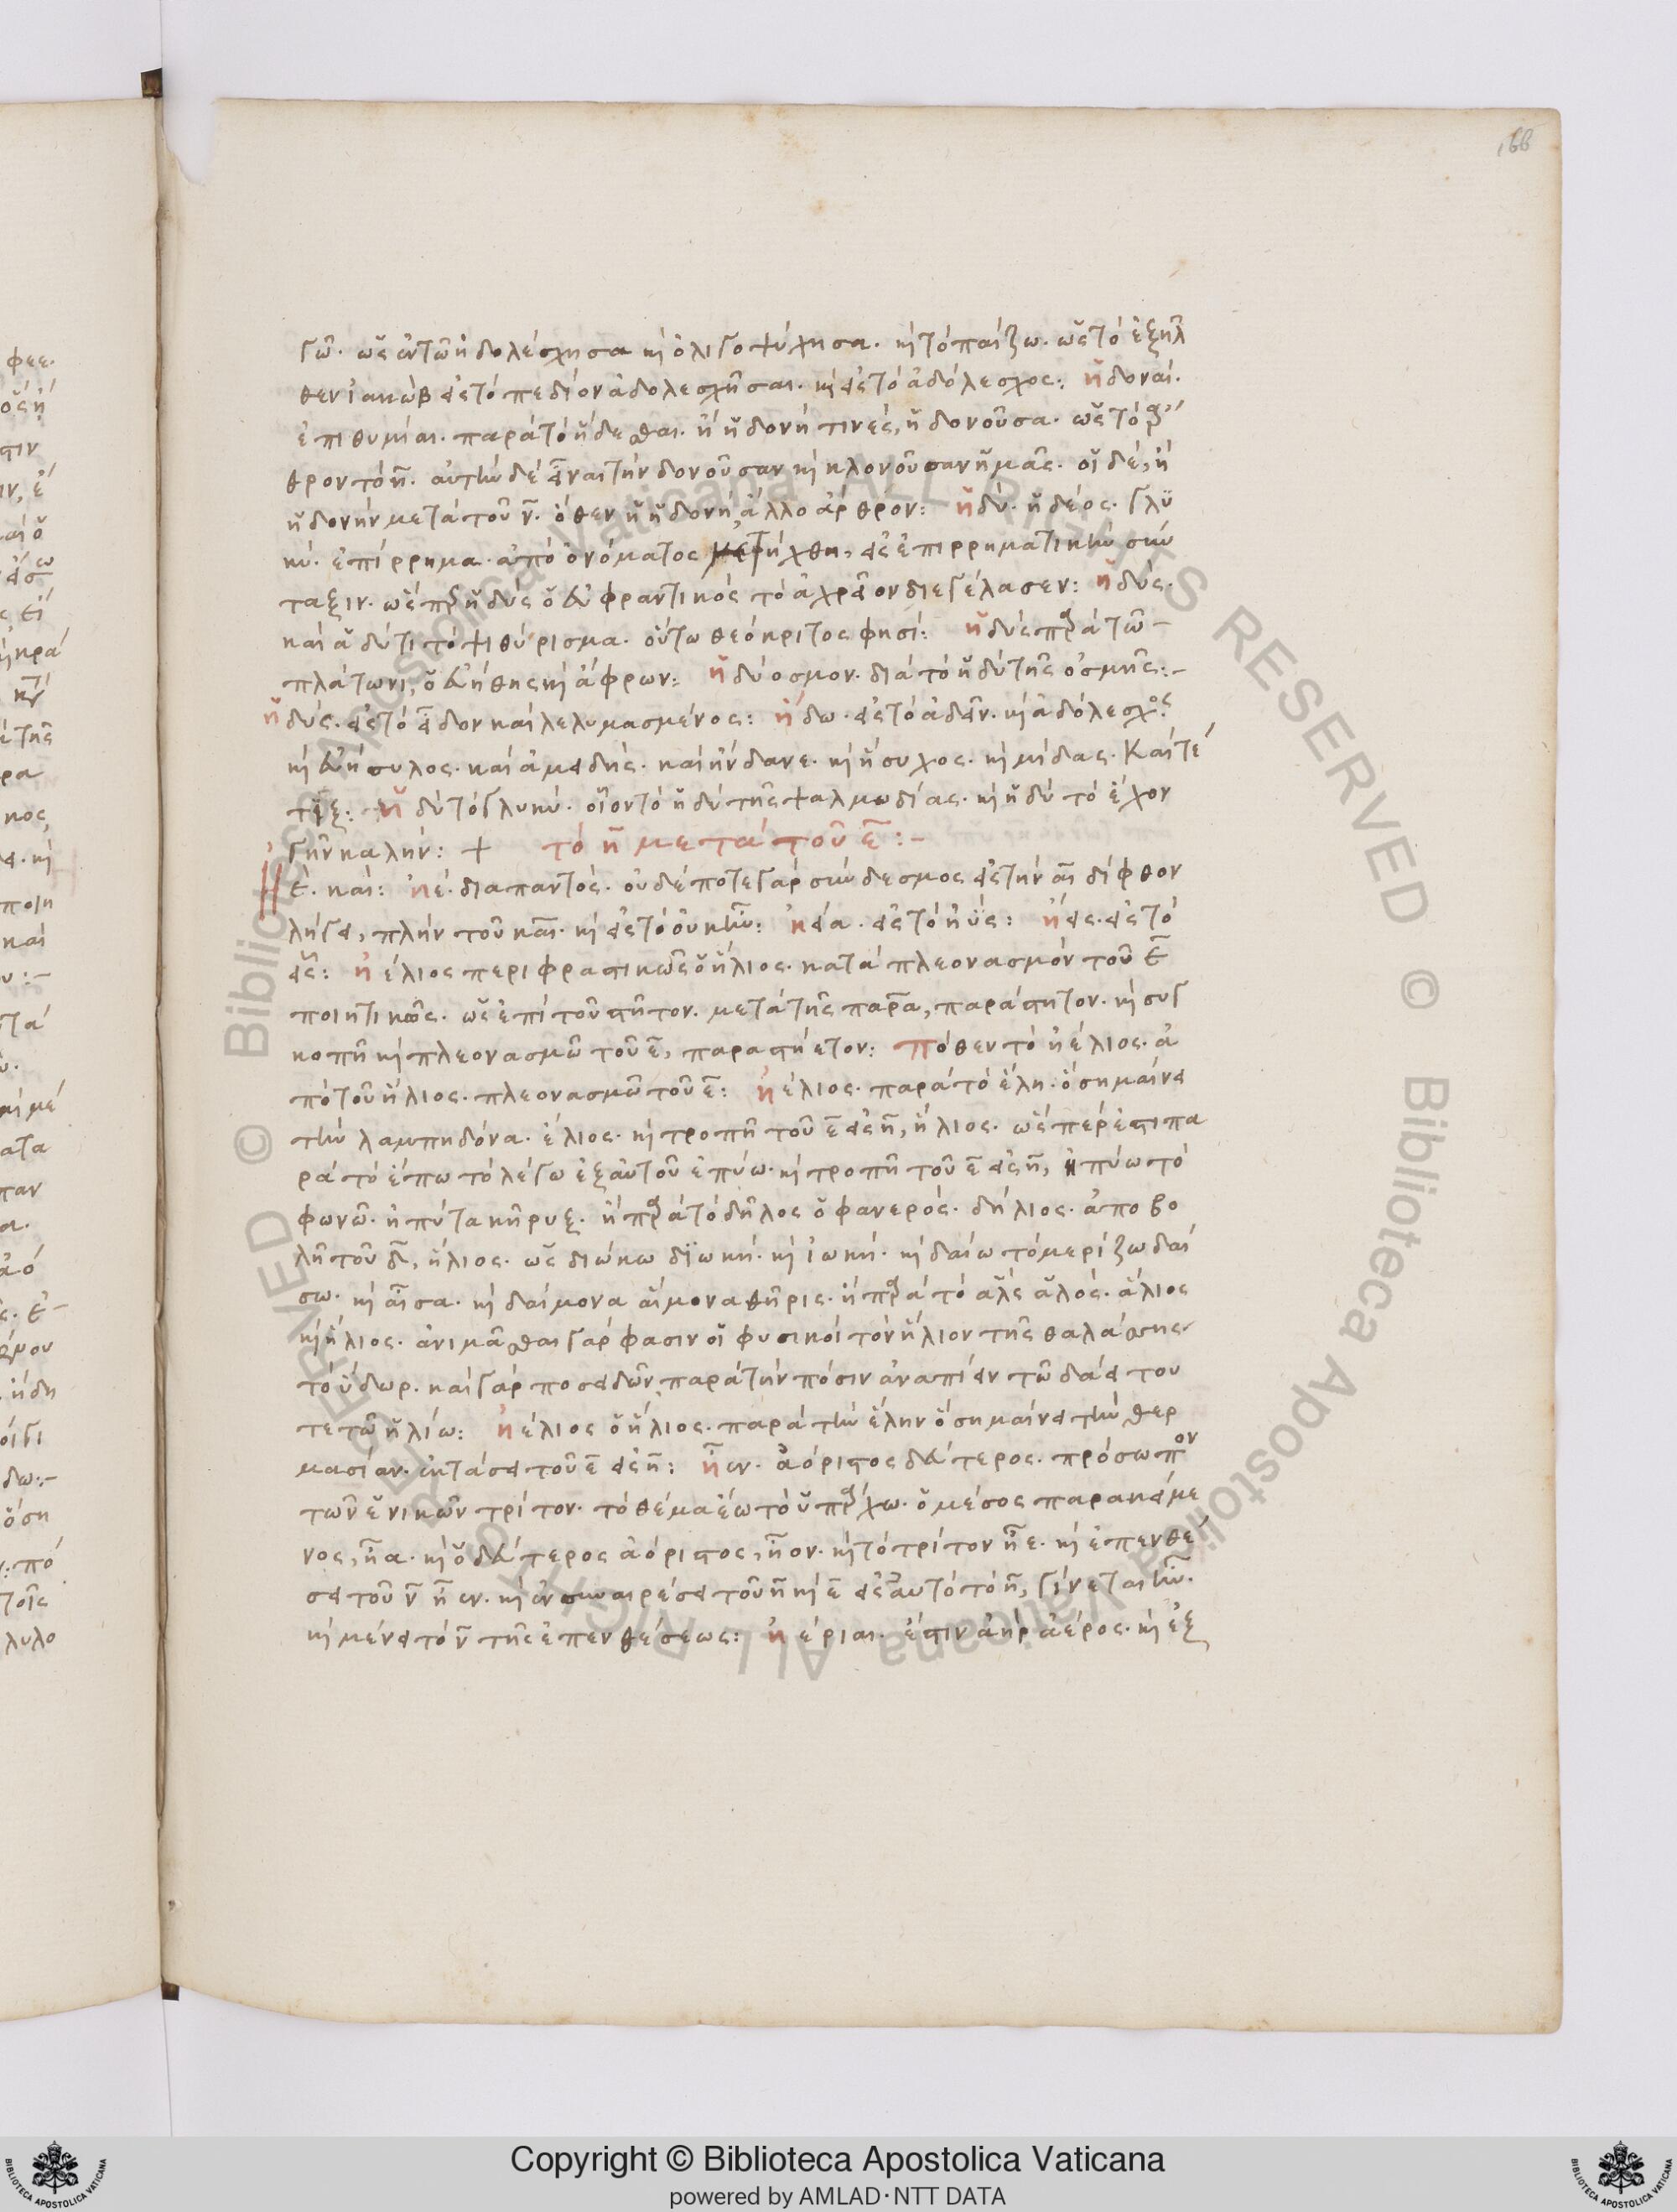 166
γῶ. ὡς ἐν τῶ ἠδολέσχησα κỳ ὀλιγοψύχησα. κỳ τὸ παίζω. ὡς τὸ ἐξῆλ
θεν ἰακώβ εἰς τὸ πεδίον ἀδολεσχῆσαι. κỳ εἰς τὸ ἀδόλεσχος: ἡδοναί.
ἐπιθυμίαι. παρὰ τὸ ἥδεσθαι. ἢ ἡδονή τινές, ἡ δονοῦσα. ὡς τὸ
θρον τὸ η̄. αὐτὴν δὲ εἶναι τὴν δονοῦσαν κỳ κλονοῦσαν ἡμᾶς. οἱ δὲ, ἡ
ἡδονὴν μετὰ τοῦ ν̄. ὅθεν ἡ ἡδονὴ, ἄλλο ἄρθρον: ἡδύ. ἡδέος. γλυ
κύ. ἐπίρρημα. ἀπὸ ὀνόματος μετήχθη, εἰς ἐπιρρηματικὴν σύν
ταξιν. ὥσπερ ἡδὺς ὁ εὐφραντικός τὸ ἀχρεῖον διεγέλασεν: ἡδύς.
καὶ ἁδύ τι τὸ ψιθύρισμα. οὕτω θεόκριτος φησί: ἡδὺς παρὰ τῶ
πλάτωνι, ὁ εὐήθης κỳ ἄφρων: ἡδύοσμον. διὰ τὸ ἡδὺ τῆς ὀσμῆς:–
ἡδύς. εἰς τὸ εἶδον καὶ λελυμασμένος: ἥδω. εἰς τὸ ἀδεῖν. κỳ ἀδόλεσχος
κỳ αἴσυλος. καὶ ἀμειδής. καὶ ἥνδανε. κỳ ἥσυχος. κỳ μίδας. Καὶ τέ
τιξ: ἡδὺ τὸ γλυκύ. οἷον τὸ ἡδὺ τῆς ψαλμωδίας. κỳ ἡδὺ τὸ ἔχον
γῆν καλήν: + τὸ η̄ μετὰ τοῦ ε̄:–
Ἠέ. καί: ἠέ. διαπαντός. οὐδέποτε γὰρ σύνδεσμος εἰς τὴν αι δίφθον
λήγει, πλὴν τοῦ καί. κỳ εἰς τὸ οὐκὴν: ἠεία. εἰς τὸ ἠΰς: ἤεις. εἰς τὸ
εἷς: ἠέλιος περιφραστικῶς ὁ ἥλιος. κατὰ πλεονασμὸν τοῦ ε̄
ποιητικῶς. ὡς ἐπὶ τοῦ στῆτον. μετὰ τῆς παρα, παράστητον. κỳ συγ
κοπῆ κỳ πλεονασμῶ τοῦ ε̄, παραστήετον: πόθεν τὸ ἠέλιος. ἀ
πὸ τοῦ ἥλιος. πλεονασμῶ τοῦ ε̄: ἠέλιος. παρὰ τὸ ἕλη. ὃ σημαίνει
τὴν λαμπηδόνα. ἕλιος. κỳ τροπῆ τοῦ ε̄ εἰς η̄, ἥλιος. ὥσπερ ἐστι πα
ρὰ τὸ ἔπω τὸ λέγω ἐξ αὐτοῦ ἐπύω. κỳ τροπῆ τοῦ ε̄ εἰς η̄, ἠπύω τὸ
φωνῶ. ἠπύτα κῆρυξ. ἢ παρὰ τὸ δῆλος ὁ φανερός. δήλιος. ἀποβο
λῆ τοῦ δ̄, ἥλιος. ὡς διώκω διωκή. κỳ ἰωκή. κỳ δαίω τὸ μερίζω δαί
σω. κỳ αἶσα. κỳ δαίμονα αἵμονα θῆρις. ἢ παρὰ τὸ ἅλς ἁλός. ἅλιος
κỳ ἥλιος. ἀνιμᾶσθαι γάρ φασιν οἱ φυσικοὶ τὸν ἥλιον τῆς θαλάσσης
τὸ ὕδωρ. καὶ γὰρ ποσειδῶν παρὰ τὴν πόσιν ἀναπιεῖν τῶ δαεί του
τε τῶ ἡλίω: ἠέλιος ὁ ἥλιος. παρὰ τὴν ἕλην ὃ σημαίνει τὴν θερ
μασίαν. ἐκτάσει τοῦ ε̄ εἰς η̄: ἦεν. ἀόριστος δεύτερος. πρόσωπον
τῶν ἑνικῶν τρίτον. τὸ θέμα ἔω τὸ ὑπάρχω. ὁ μέσος παρακείμε
νος, ἦα. κỳ ὁ δεύτερος ἀόριστος, ἦον. κỳ τὸ τρίτον ἦε. κỳ ἐπενθέ
σει τοῦ ν̄ ἦεν. κỳ ἐν συναιρέσει τοῦ η̄ κỳ ε̄ εἰς αὐτὸ τὸ η̄, γίνεται ἦν.
κỳ μένει τὸ ν̄ τῆς ἐπενθέσεως: ἠέριαι. ἔστιν ἀὴρ ἀέρος. κỳ ἐξ
Copyright © Biblioteca Apostolica Vaticana
powered by AMLAD·NTT DATA